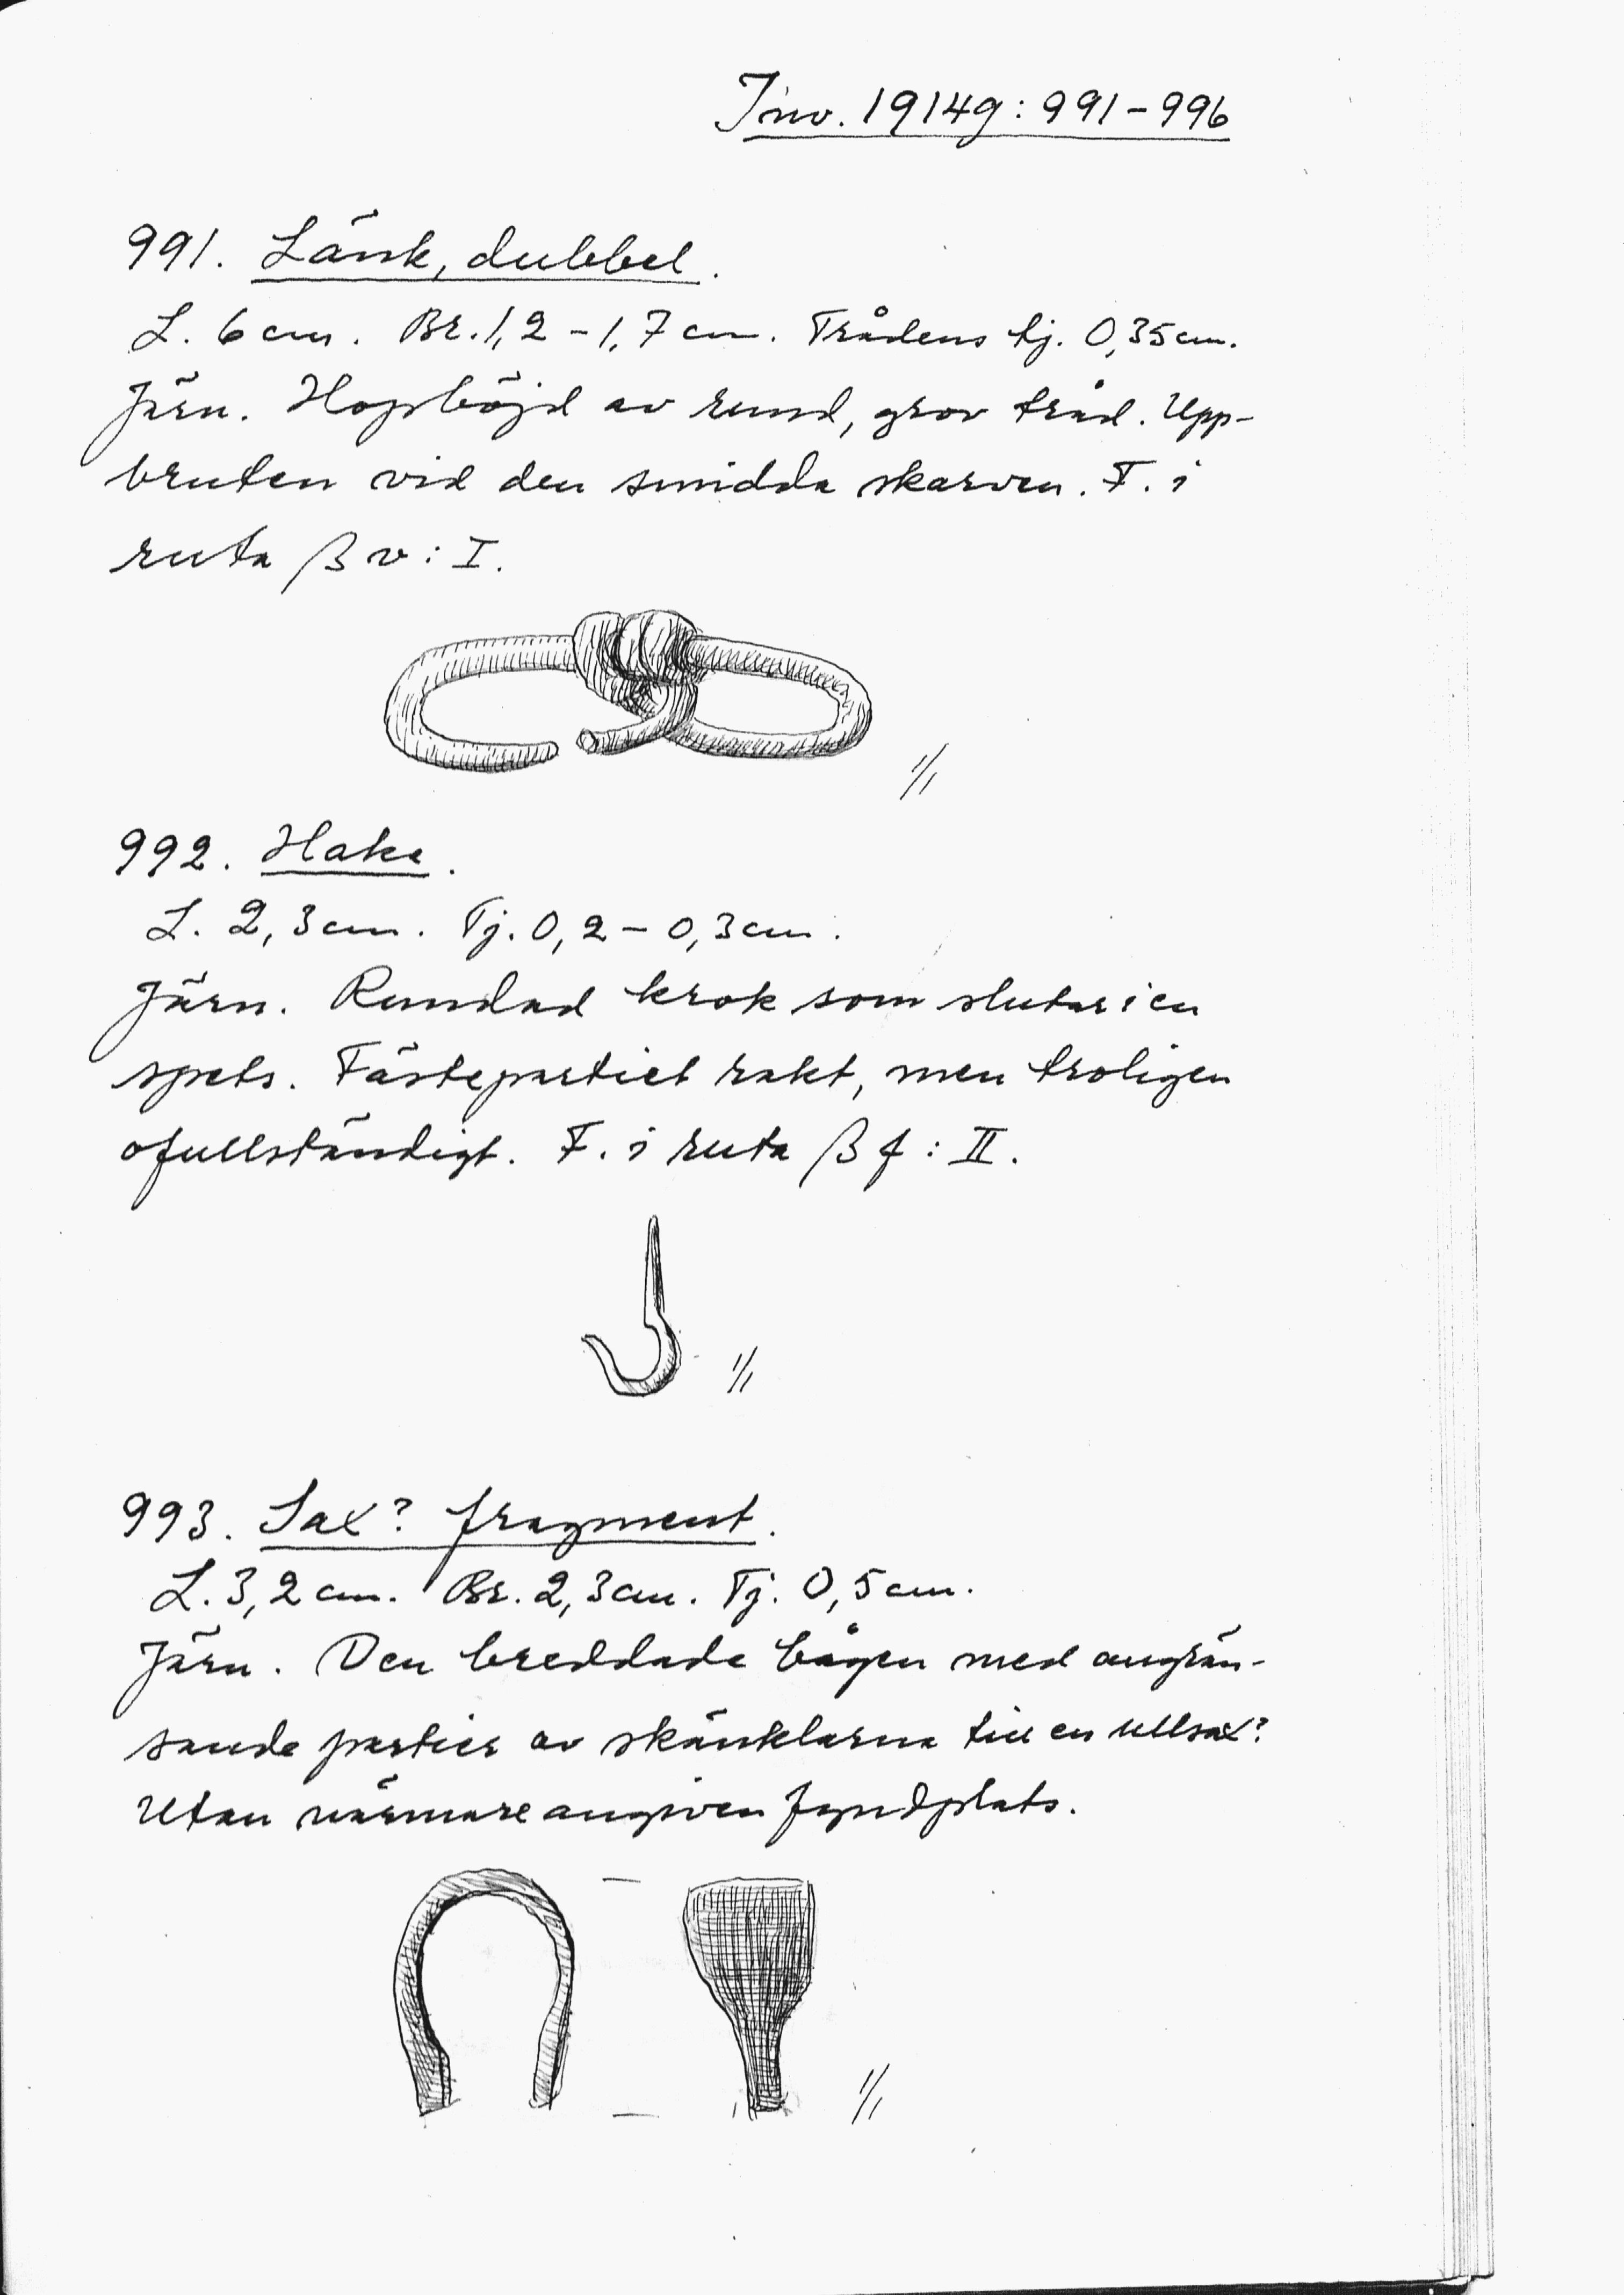 Inv. 19149:991-996
991. Länk, dubbel.
L. 6 cm. Br. 1,2-1,7 cm. Trådens tj. 0,35 cm.
Järn. Hopböjd av rund, grov tråd. Upp-
bruten vid den smidda skarven. F. i
ruta β v: I.
1/1
992. Hake.
L. 2,3 cm. Tj. 0,2-0,3 cm.
Järn. Rundad krok som slutar i en
spets. Fästepartiet rakt, men troligen
ofullständigt. F. i ruta β f: II.
1/1
993. Sax? fragment.
L. 3,2 cm. Br. 2,3 cm. Tj. 0,5 cm.
Järn. Den breddade bågen med angrän-
sande partier av skänklarna till en ullsax?
Utan närmare angiven fyndplats.
1/1